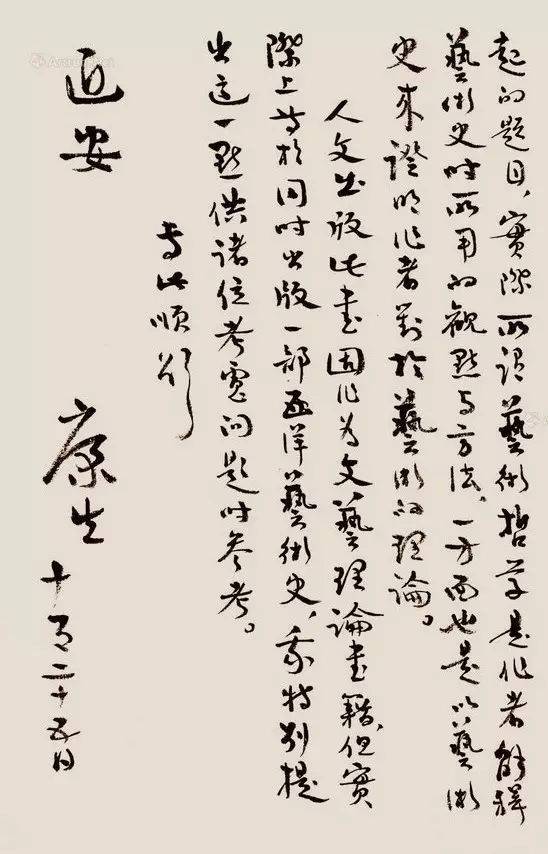 起的题目，實際所謂藝術哲学是作者解释
藝術史时所用的觀點与方法，一方面也是以藝術
史來證明作者對於藝術的理論。
人文出版此書固作为文藝理論書籍，但實
際上等於同时出版一部西洋藝術史，我特别提
出这一點供諸位考慮问题时参考。
专此順頌
近安
康生
十一月二十五日